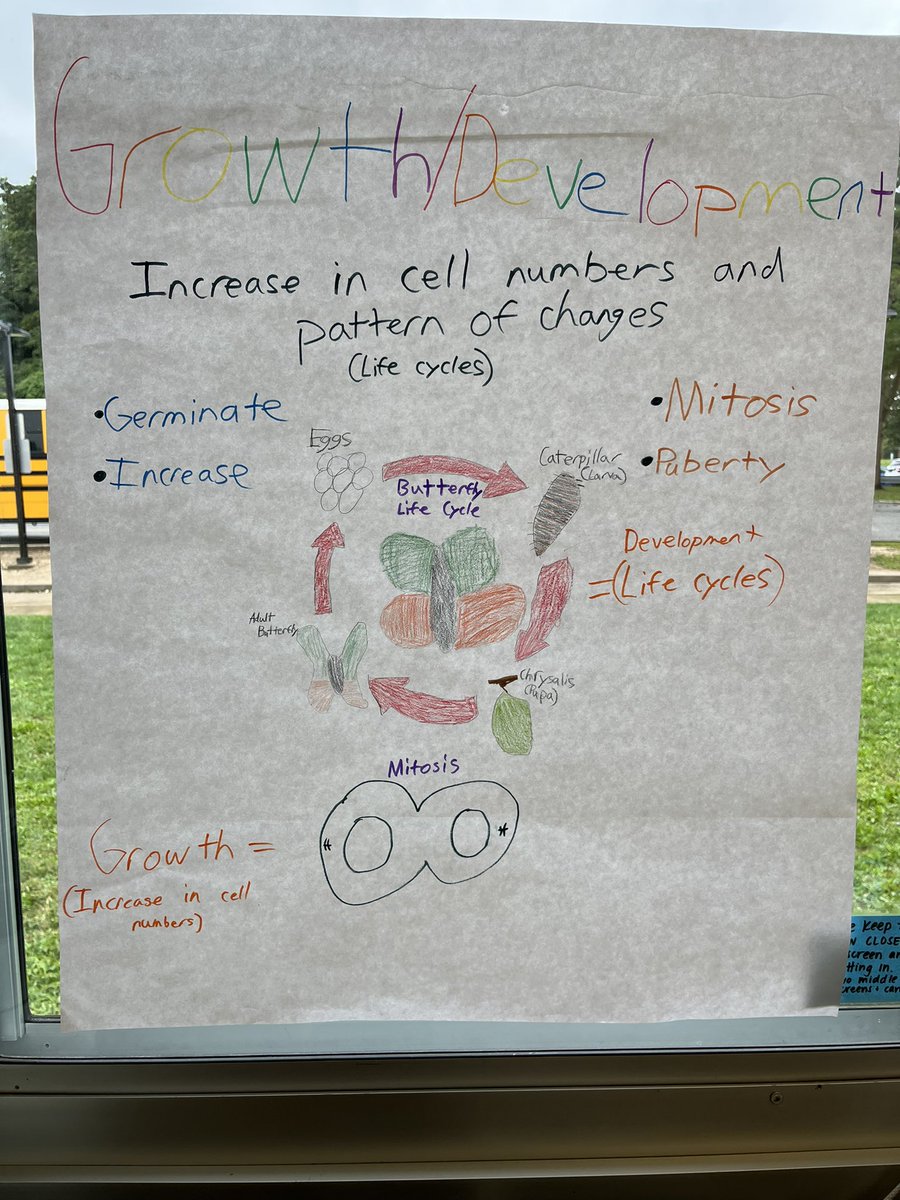 Growth/Development
Increase in cell numbers and
pattern of changes
(Life cycles)
• Germinate
• Increase
• Mitosis
• Puberty
Development
=(Life cycles)
Eggs
Butterfly
Life Cycle
Caterpillar
(Larva)
Adult
Butterfly
Chrysalis
(Pupa)
Mitosis
Growth =
(Increase in cell
numbers)
keep
CLOSE
screen
tting in.
middle
creens